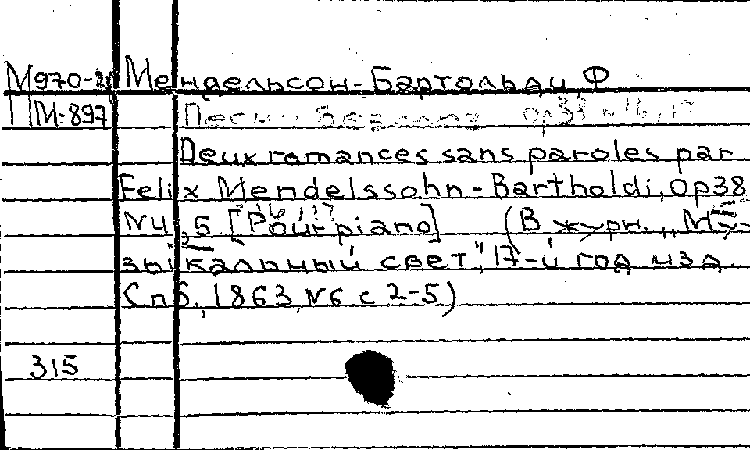 М970-
Мендельсон-Бартольди, Ф
П М-897
Песни без слов ор38 №16, 17
Deux romances sans paroles par
Felix Mendelssohn-Bartholdi, op38
№4,5 [Pour piano] (В журн. „Му-
зыкальный свет", 17-й год изд.
Спб., 1863, №6 с 2-5)
315